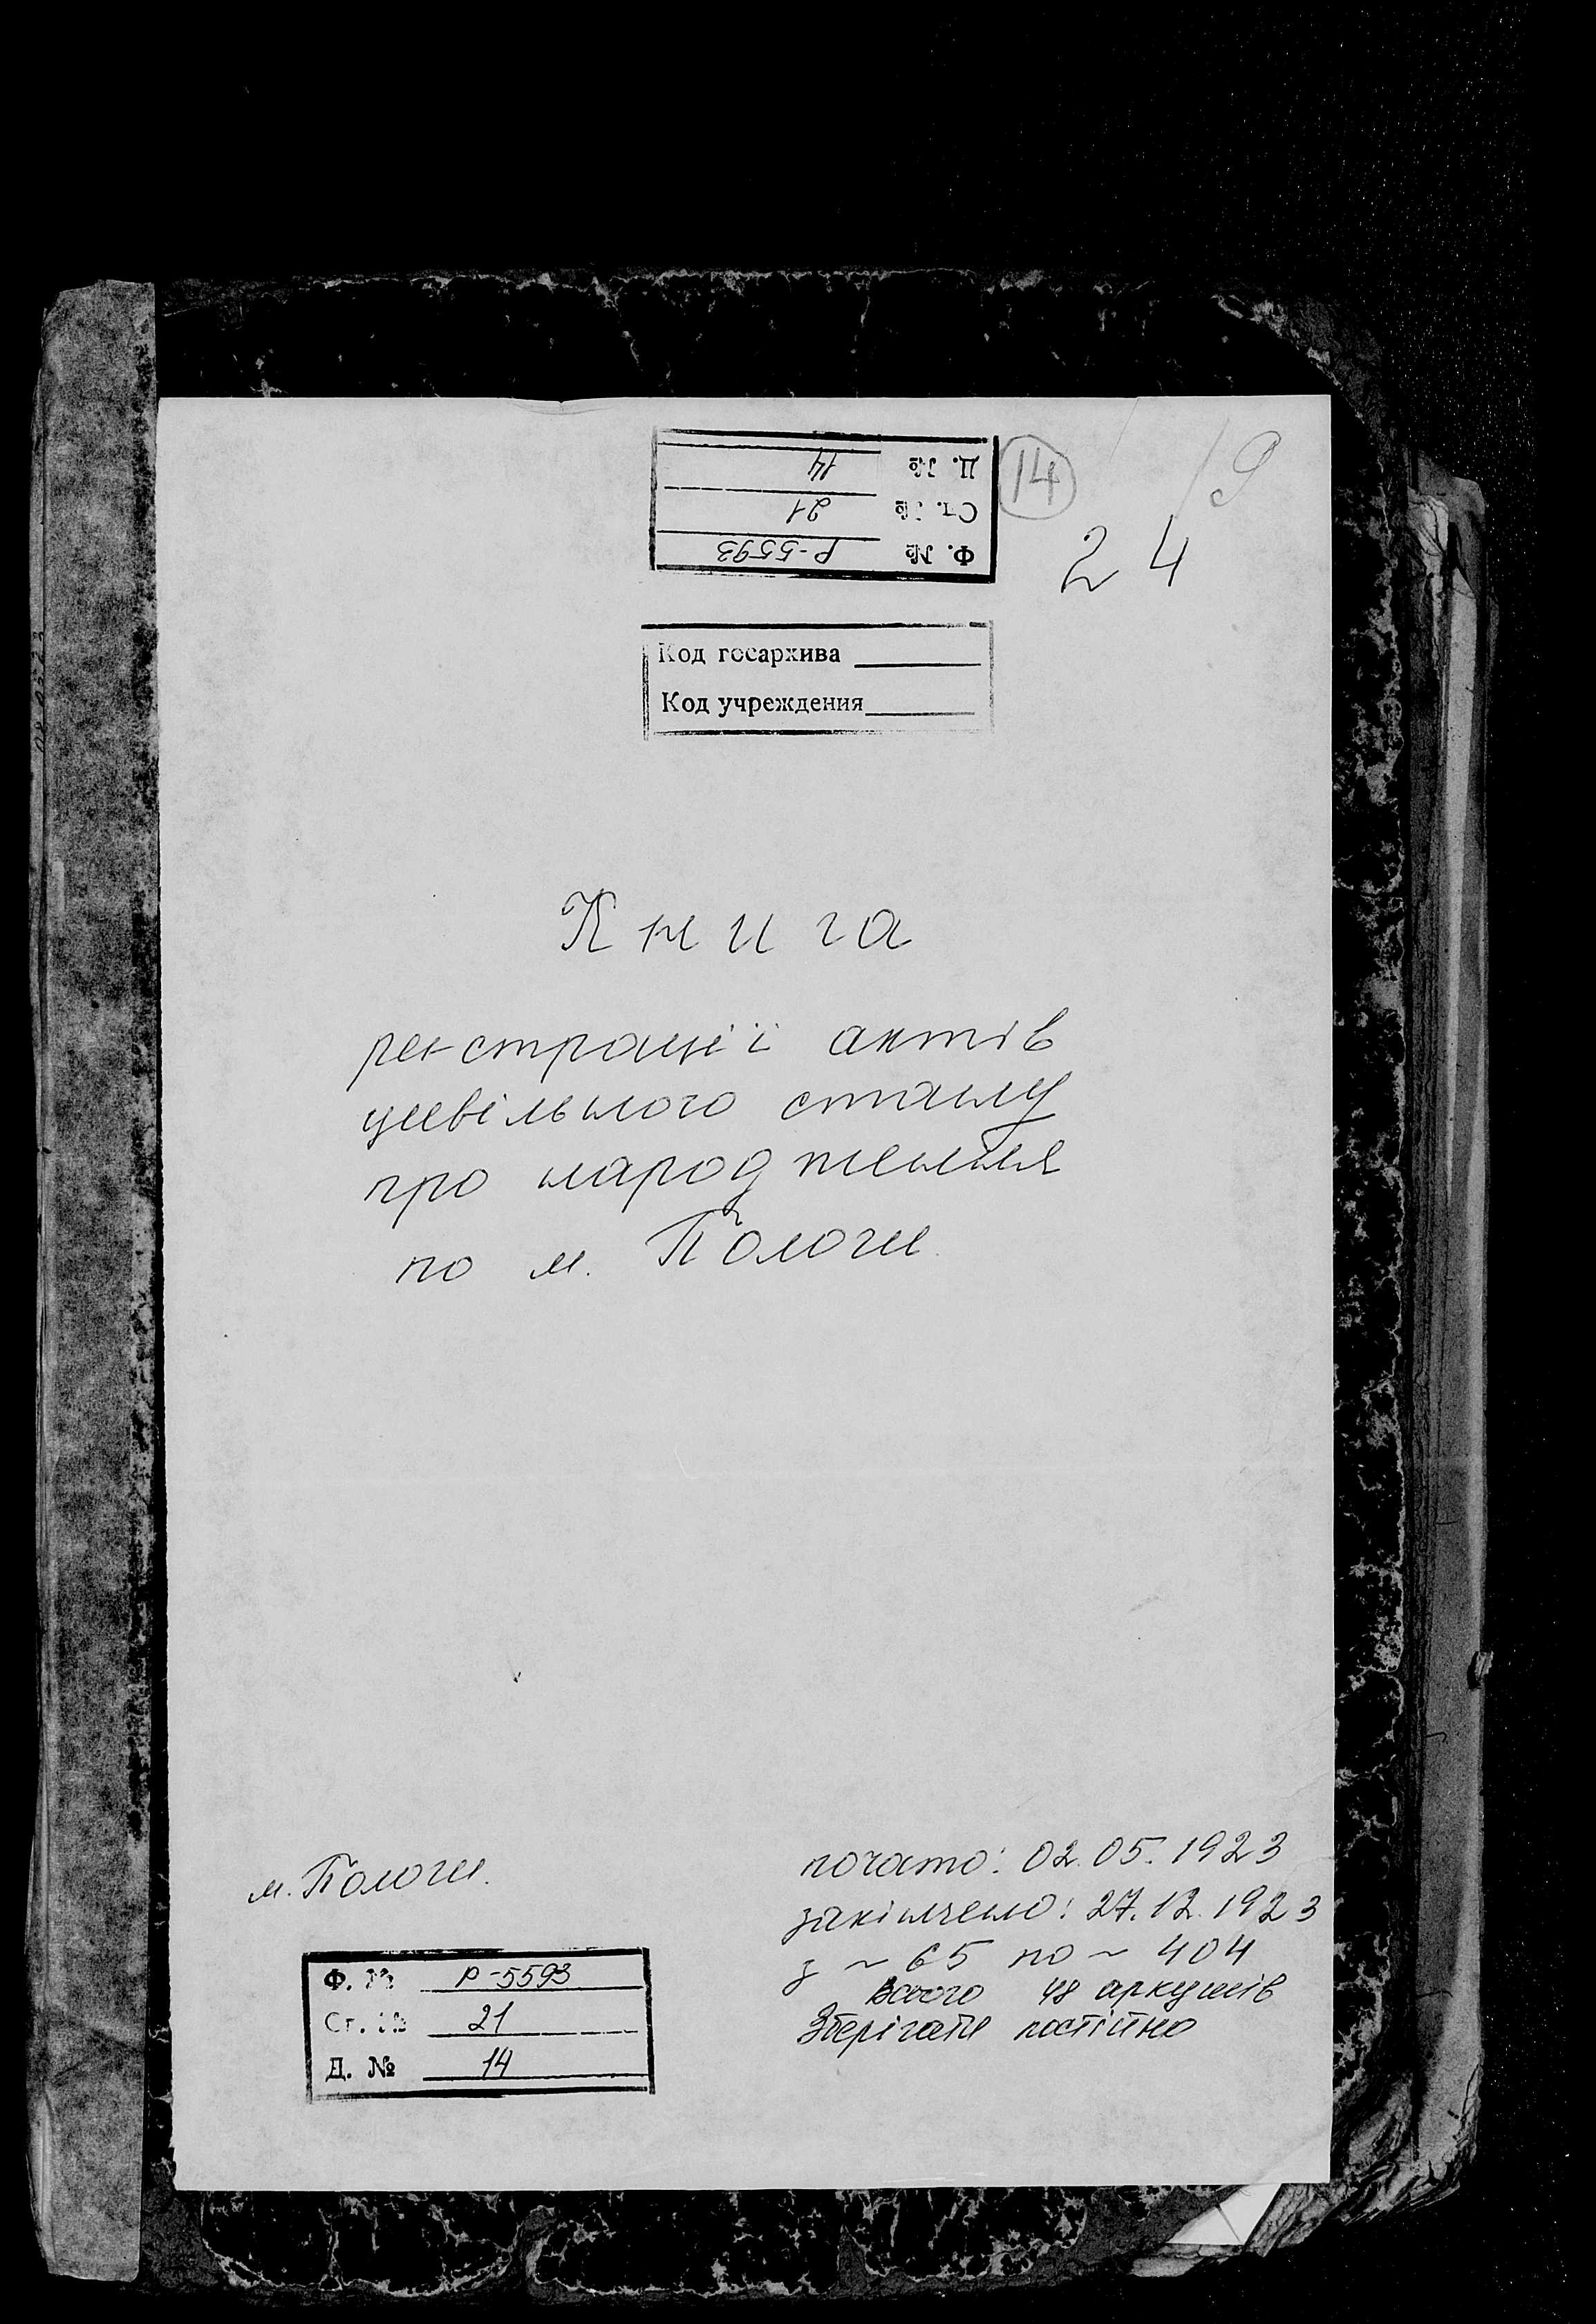 Д. № 14
Ст. № 21
Ф. № Р-5593
14
9
24
Код госархива
Код учреждения
Книга
реєстрації актів
цивільного стану
про народження
по м. Пологи
м. Пологи.
почато: 02.05.1923
закінчено: 27.12.1923
з ~ 65 по ~ 404
всього 48 аркушів
Зберігати постійно
Ф. № Р-5593
Ст. № 21
Д. № 14